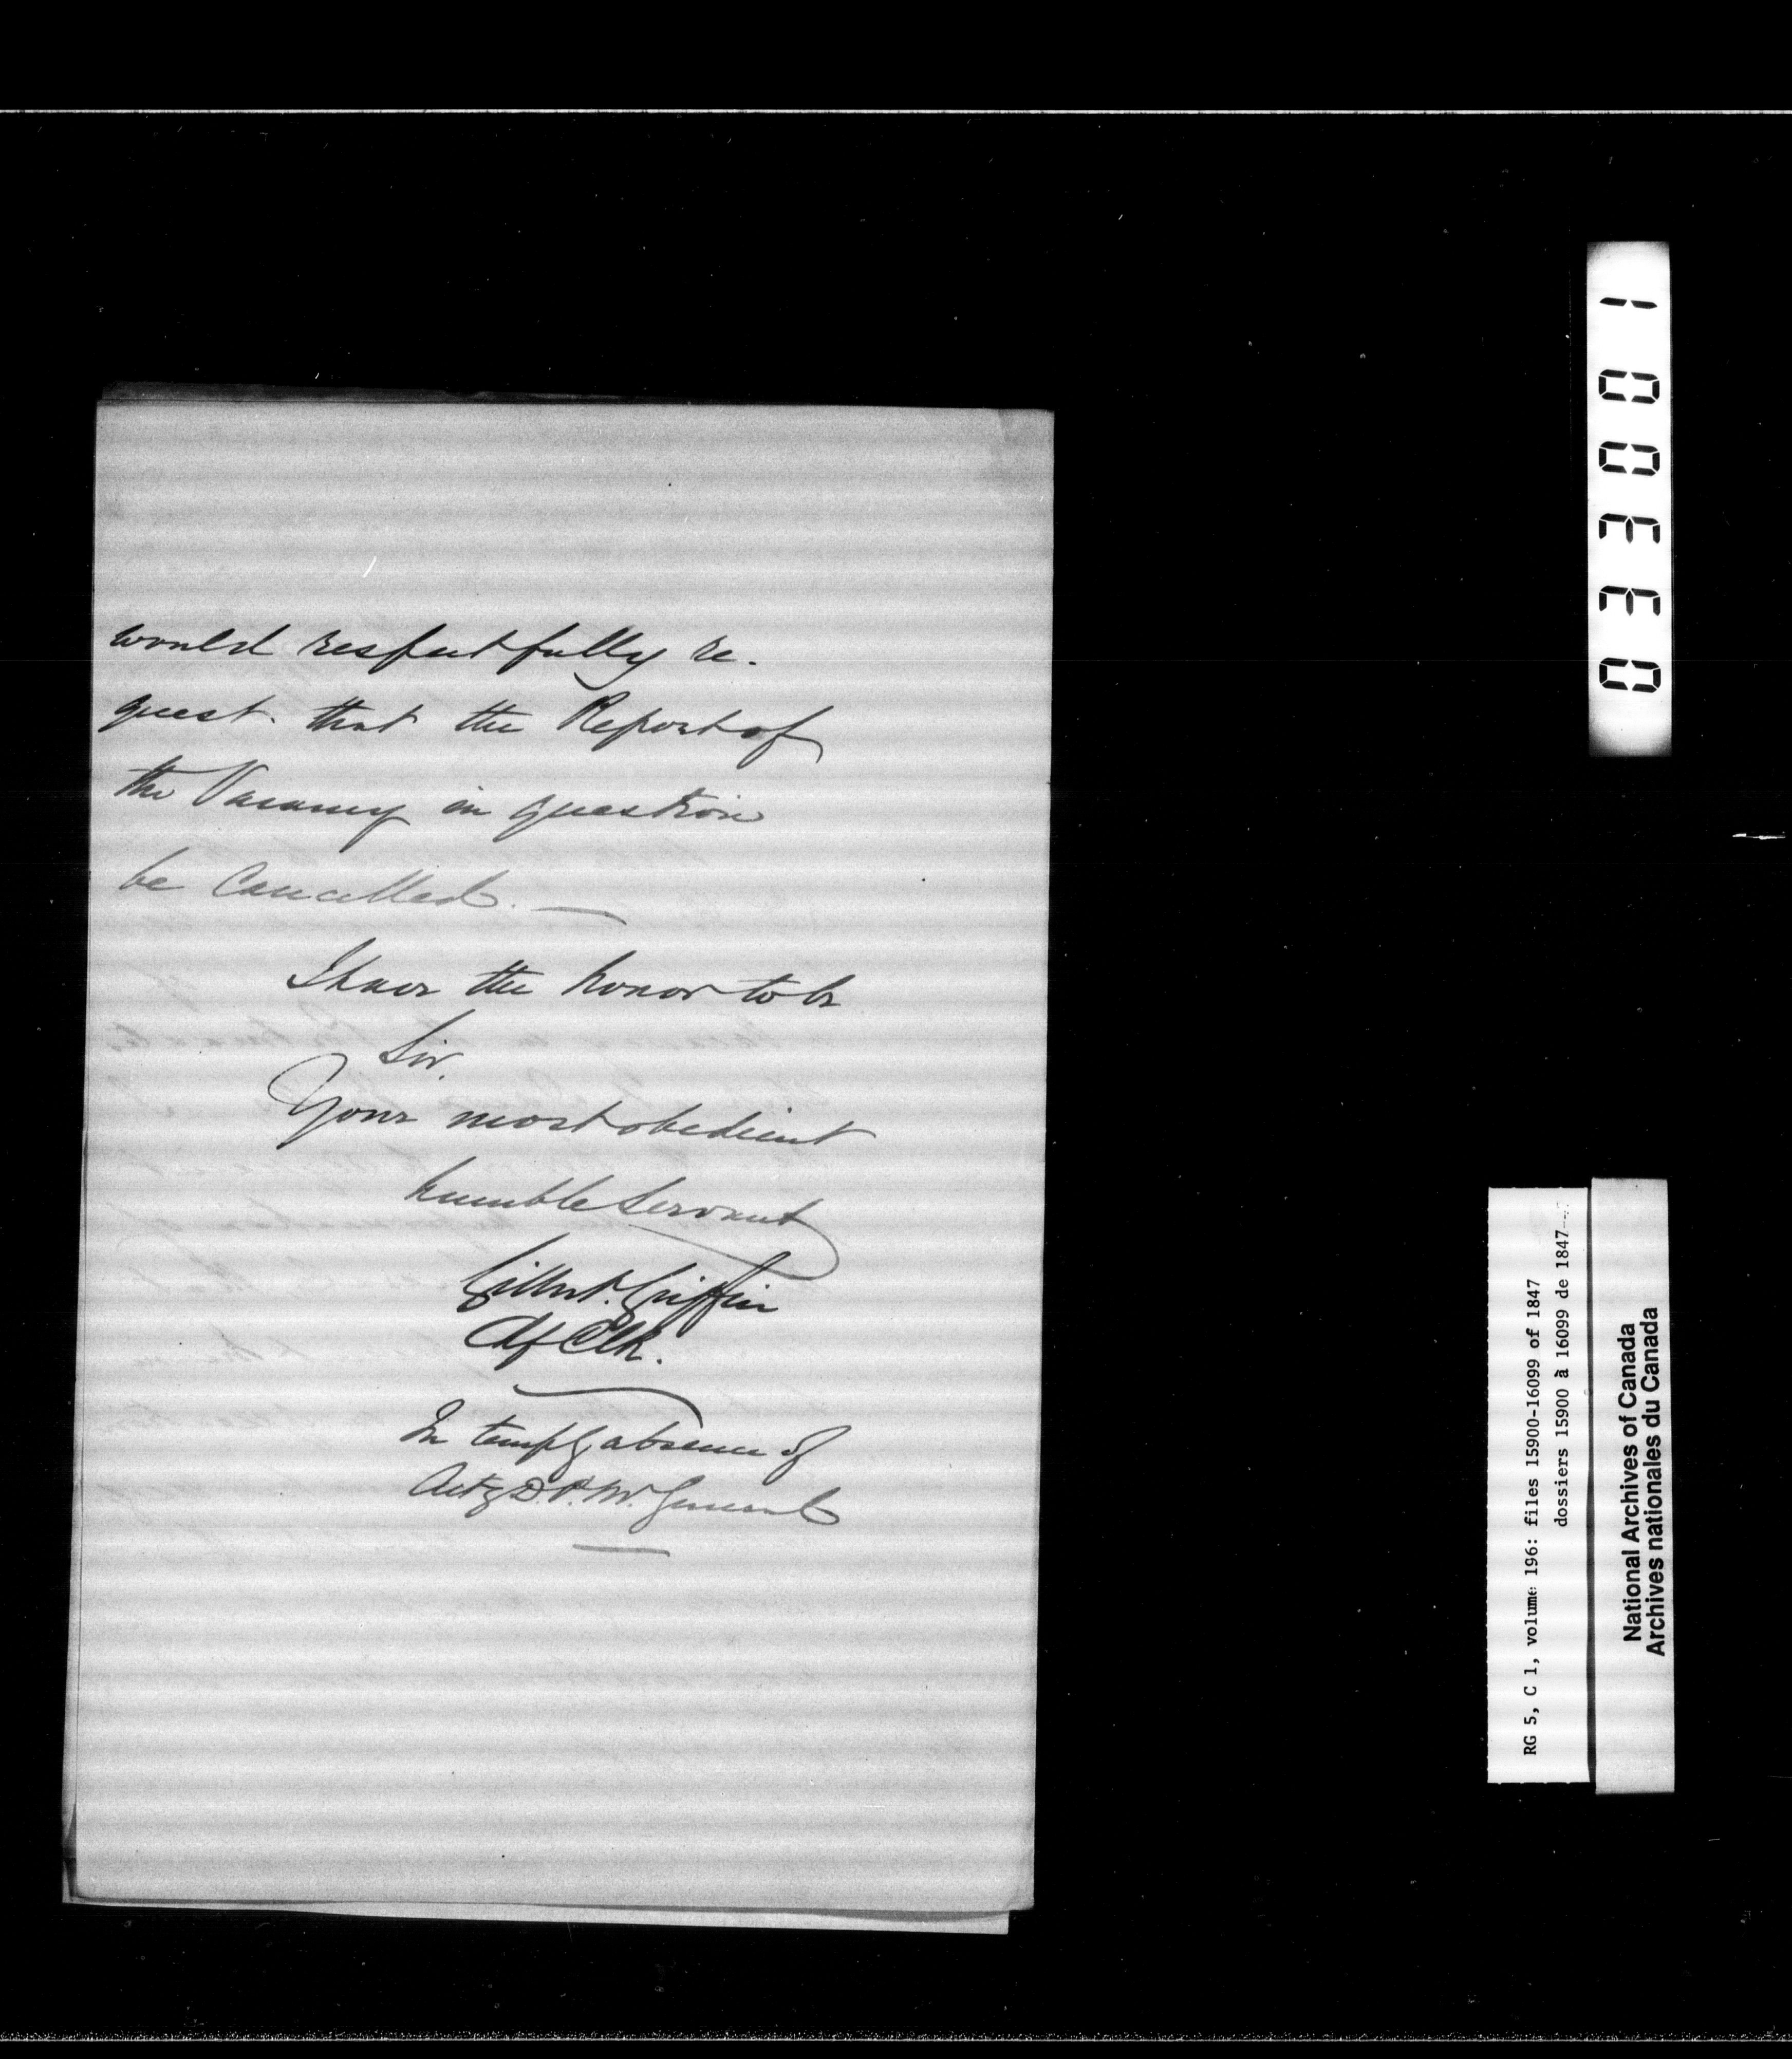 would respectfully re-
quest that the Report of
the Vacancy in question
be Cancelled. —
I have the honor to be
Sir.
Your most obedient
humble Servant
Gilbert Griffin
Clk.
In tempy absence of
Actg D. P. M. General
1 0 0 3 3 0
RG 5, C 1, volume 196: files 15900-16099 of 1847
dossiers 15900 à 16099 de 1847
National Archives of Canada
Archives nationales du Canada